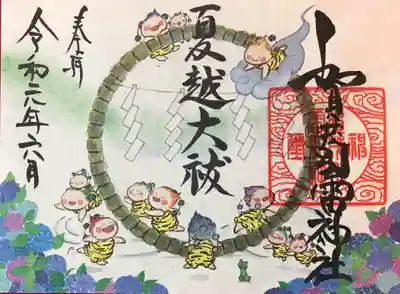 賀茂別雷神社
夏越大祓
奉拝
令和元年六月